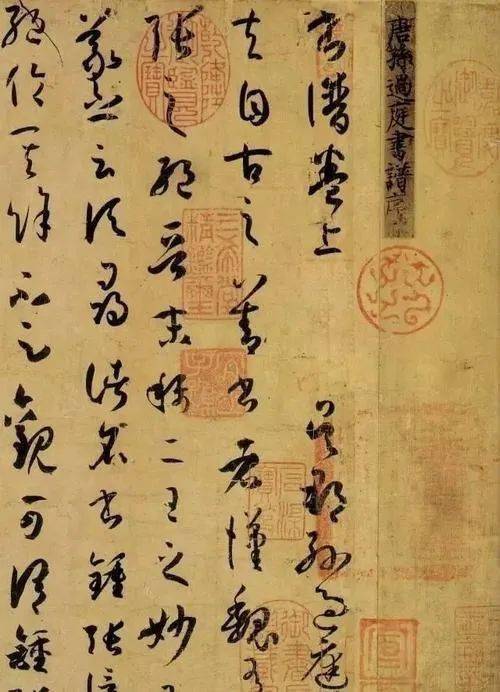 唐孫過庭書譜序
書譜卷上 吳郡孫過庭
夫自古之善書者漢魏有
張之絕晉末稱二王之妙王
羲之云頃尋諸名書鍾張信
絕倫其餘不足觀可謂鍾張
乾隆御覽之寶
三希堂精鑑璽